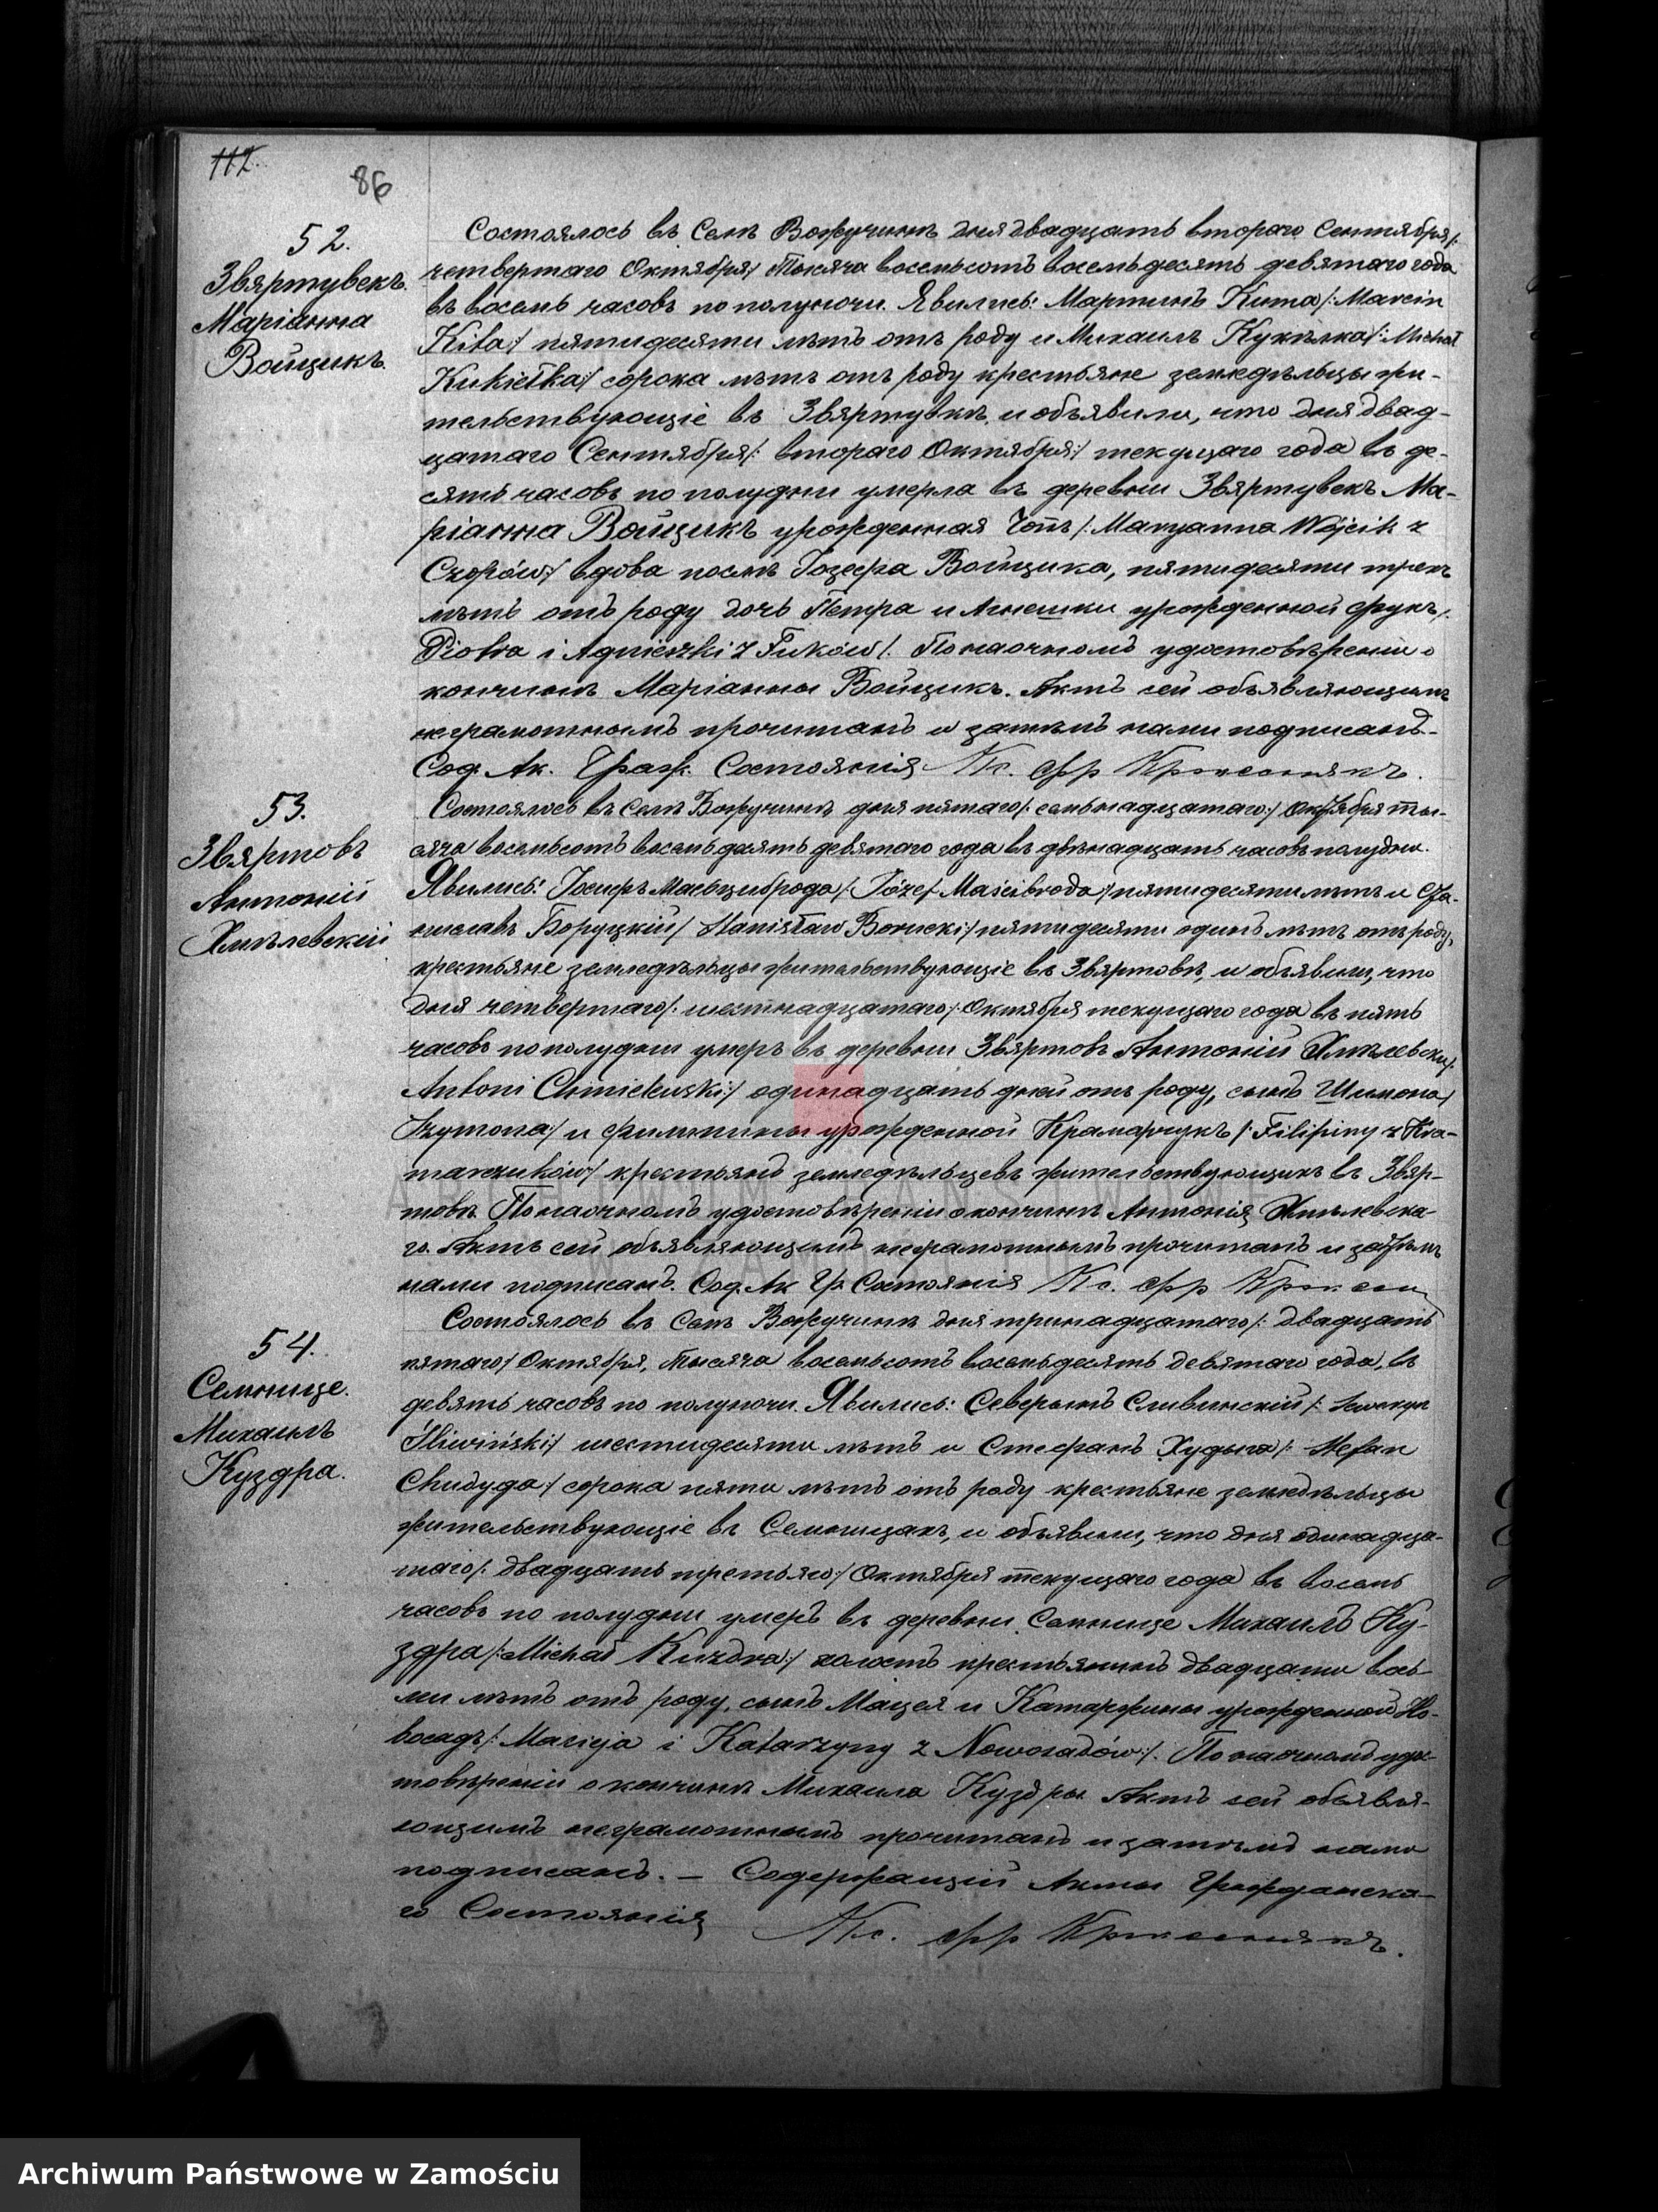 112.
86
52.
Звяртувекъ.
Маріанна
Войцикъ.
Состоялось въ Селѣ Вожучинѣ дня двадцать втораго Сентября/:
четвертаго Октября:/ Тысяча восемьсотъ восемьдесятъ девятаго года
въ восемь часовъ по полуночи. Явились: Мартинъ Кита/: Marcin
Kita:/ пятидесяти лѣтъ отъ роду и Михаилъ Кукѣлка/: Michał
Kukiełka:/ сорока лѣтъ отъ роду крестьяне земледѣльцы жи-
тельствующіе въ Звяртувкѣ, и объявили, что дня двад-
цатаго Сентября/: втораго Октября:/ текущаго года въ де-
сять часовъ по полудни умерла въ деревни Звяртувекъ Ма-
ріанна Войцикъ урожденная Чопъ/: Maryanna Wójcik z
Czopów:/ вдова послѣ Іозефа Войцика, пятидесяти трехъ
лѣтъ отъ роду дочь Петра и Агнешки урожденной Фукъ/:
Piotra i Agnieszki z Fuków/. По наочномъ удостовѣреніи о
кончинѣ Маріанны Войцикъ. Актъ сей объявляющимъ
неграмотнымъ прочитанъ и затѣмъ нами подписанъ.-
Сод. Ак. Граж. Состоянія Кс. Фр
53.
Звяртовъ
Антоній
Хмѣлевскій
Состоялось въ Селѣ Вожучинѣ дня пятаго/: семьнадцатаго:/ Октября ты-
сяча восемьсотъ восемьдесятъ девятаго года въ двѣнадцать часовъ полудни.
Явились: Іосифъ Масьциброда/: Józef Maścibroda:/ пятидесяти лѣтъ и Ста-
ниславъ Боруцкій/ Stanisław Borucki:/ пятидесяти одинъ лѣтъ отъ роду,
крестьяне земледѣльцы жительствующіе въ Звяртовѣ, и объявили, что
дня четвертаго/: шестнадцатаго:/ Октября текущаго года въ пять
часовъ по полудни умеръ въ деревни Звяртовъ Антоній Хмѣлевскій/:
Antoni Chmielewski:/ одинадцать дней отъ роду, сынъ Шимона/
Szymona:/ и Филипины урожденной Крамарчукъ/: Filipiny z Kra-
marczuków:/ крестьянъ земледѣльцевъ жительствующихъ въ Звяр-
товѣ. По наочномъ удостовѣреніи о кончинѣ Антонія Хмѣлевска-
го. Актъ сей объявляющимъ неграмотнымъ прочитанъ и затѣмъ
нами подписанъ. Сод. Ак Гр Состоянія Кс. Фр
54.
Семнице.
Михаилъ
Куздра.
Состоялось въ Селѣ Вожучинѣ дня тринадцатаго/: двадцать
пятаго/ Октября, Тысяча восемьсотъ восемьдесятъ девятаго года, въ
девять часовъ по полуночи. Явились: Северынъ Сливинскій/: Seweryn
Śliwiński:/ шестидесяти лѣтъ и Стефанъ Худыга/: Stefan
Chudyga:/ сорока пяти лѣтъ отъ роду крестьяне земледѣльцы
жительствующіе въ Семницахъ, и объявили, что дня одинадца-
таго/: двадцать третьяго:/ Октября текущаго года въ восемь
часовъ по полудни умеръ въ деревни Семнице Михаилъ Ку-
здра/: Michał Kuzdra:/ холостъ крестьянинъ двадцати вось-
ми лѣтъ отъ роду, сынъ Мацея и Катаржины урожденной Но-
восадъ/: Macieja i Katarzyny z Nowosadów:/. По наочномъ удос-
товѣреніи о кончинѣ Михаила Куздры Актъ сей объявля-
ющимъ неграмотнымъ прочитанъ и затѣмъ нами
подписанъ. — Содержащій Акты Гражданска-
го Состоянія Кс. Фр
ARCHIWUM PAŃSTWOWE
W ZAMOŚCIU
Archiwum Państwowe w Zamościu